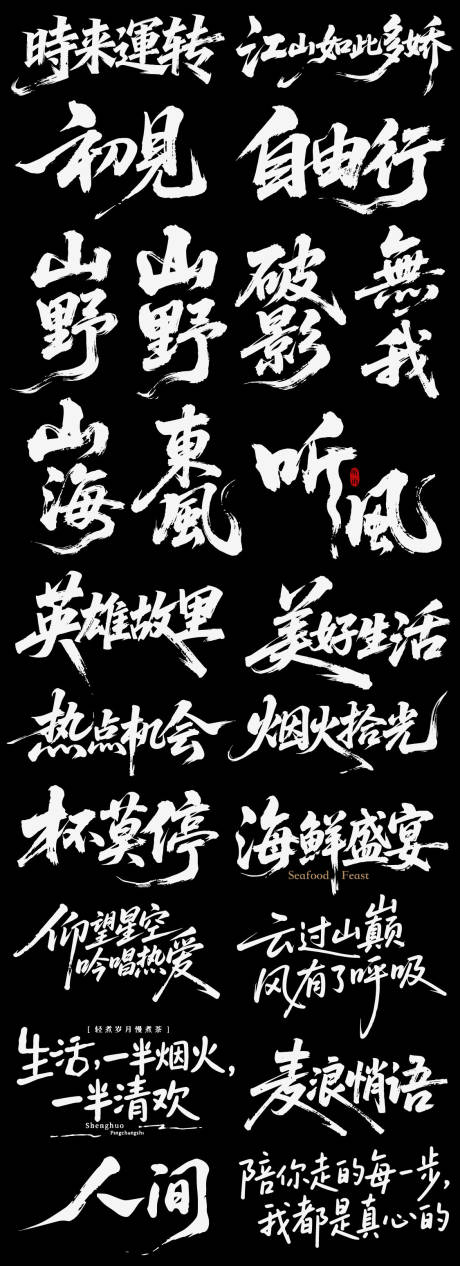 時来運转
江山如此多娇
初見
自由行
山野
山野
破影
無我
山海
東風
听風
英雄故里
美好生活
热点机会
烟火拾光
杯莫停
海鲜盛宴
Seafood Feast
仰望星空
吟唱热爱
云过山巅
风有了呼吸
[ 轻煮岁月慢煮茶 ]
生活,一半烟火,
一半清欢
Shenghuo
Pingchangshi
麦浪悄语
人间
陪你走的每一步,
我都是真心的